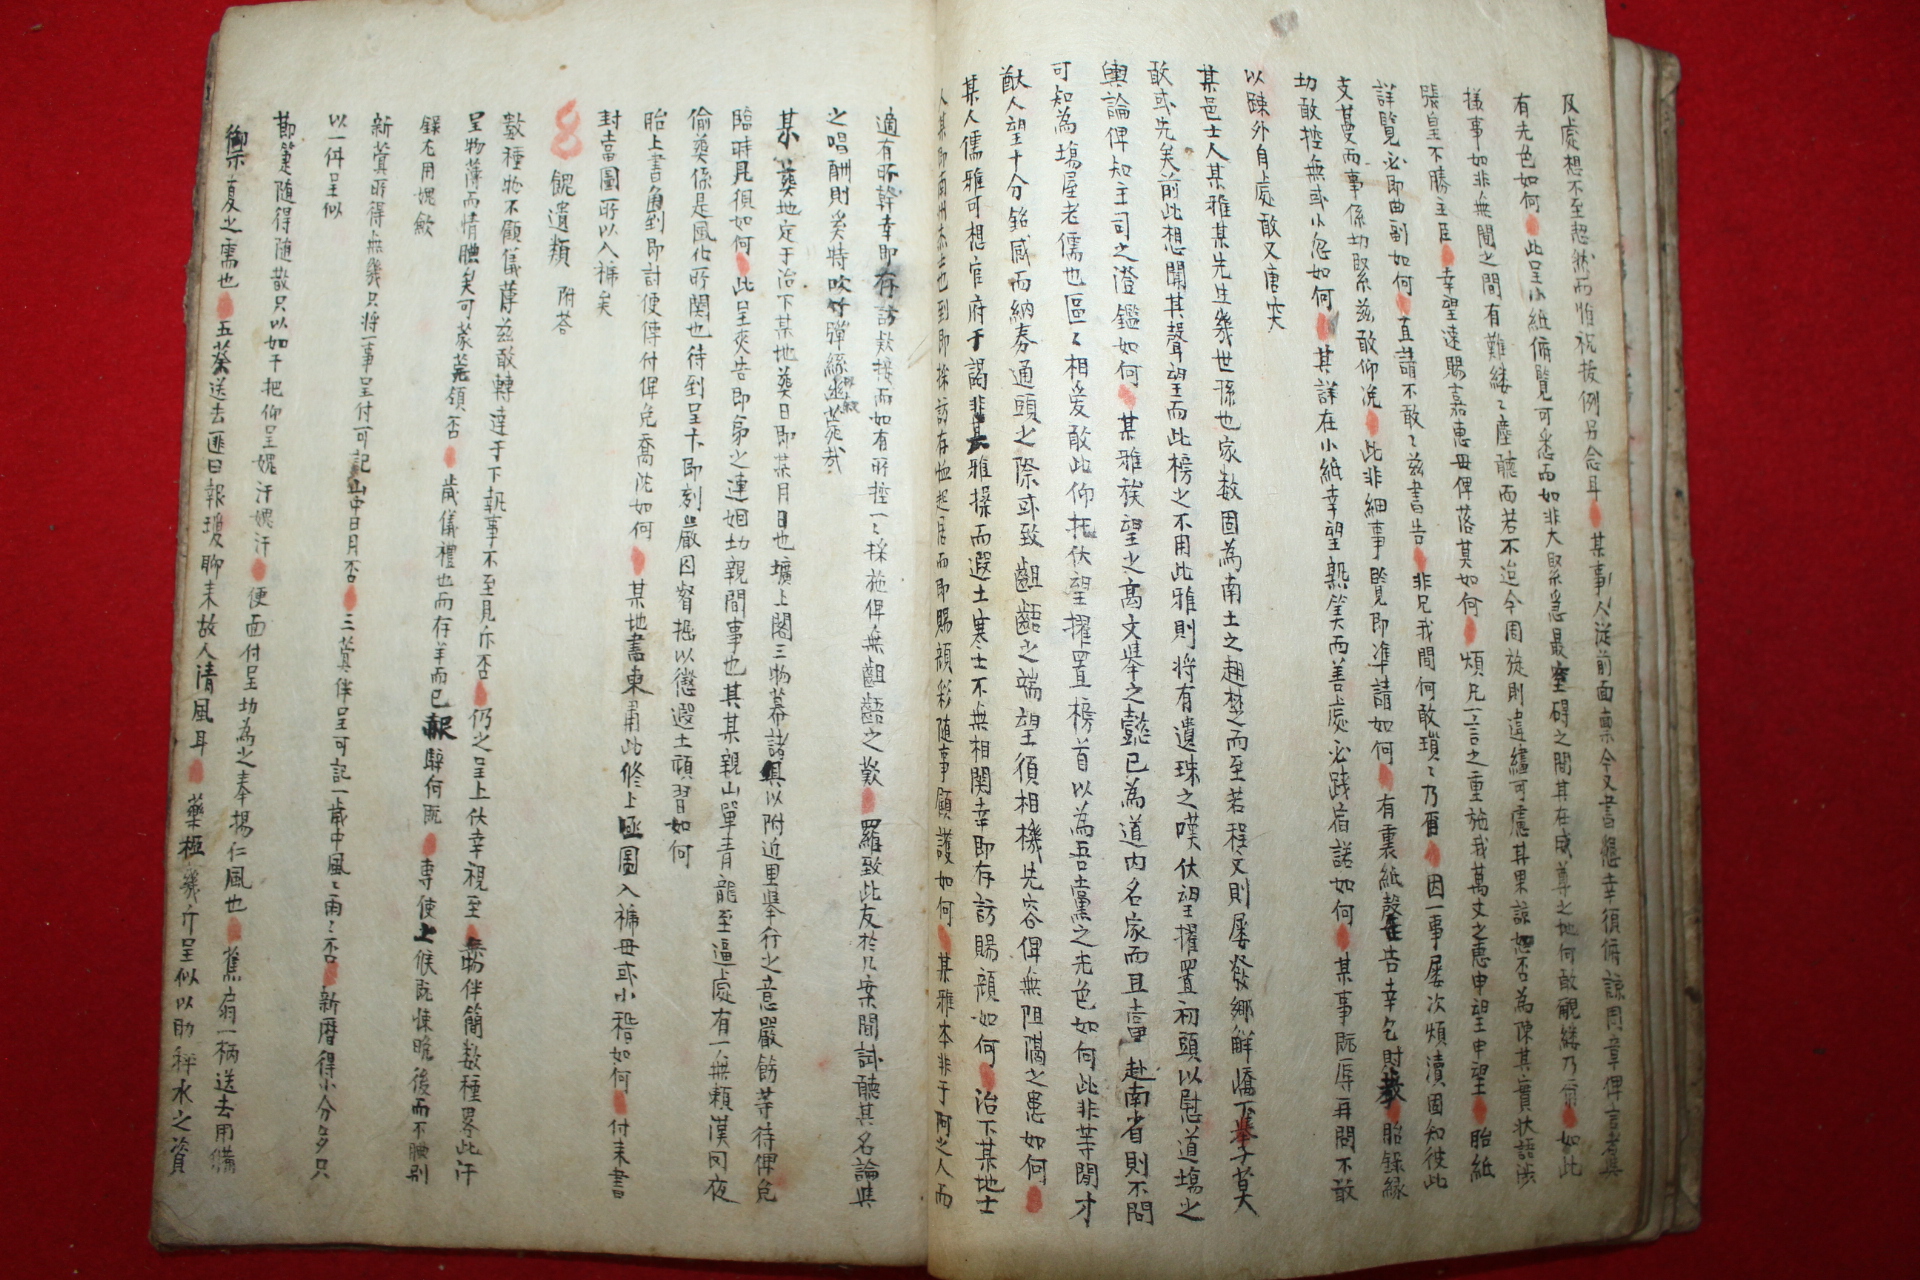 及處想不至恝然而惟祝拔例另念耳 某事人從前面稟今又書懇幸須俯諒周章俾言者其
有光色如何 此呈小紙俯覽可悉而如非大緊急最窒碍之間其在咸尊之地何敢覼縷乃爾 如此
樣事如非無聞之間有難縷〻塵聽而若不迨今周旋則違繣可慮其果諒恕否為陳其實狀語涉
張皇不勝主臣 幸望遠賜嘉惠毋俾落莫如何 煩兄一言之重施我萬丈之恵申望申望 胎紙
詳覽必即曲副如何 直請不敢〻玆書告 非兄我間何敢瑣〻乃爾 因一事屢次煩瀆固知彼此
支蔓而事係切緊玆敢仰浼 此非細事覽即準請如何 有裏紙聲告幸乞財教 胎錄緣
切敢控無或小忽如何 其詳在小紙幸望熟笑而善處必踐宿諾如何 某事旣辱再問不敢
以踈外自處敢又唐突
某邑士人某雅某先生幾世孫也家數固為南土之翹楚之而至若程文則屢發鄕觧嶠下擧子莫
敢或先矣前此想聞其聲望而此榜之不用此雅則將有遺珠之嘆伏望擢置初頭以慰道塲之
輿論俾知主司之澄鑑如何 某雅族望之高文華之懿已為道内名家而且當赴南省則不問
可知為塲屋老儒也區〻相爱敢此仰托伏望擢置榜首以為吾黨之光色如何此非等閒才
猷人望十分銘感而納劵通頭之際或致齟齬之端望須相機先容俾無阻隔之患如何
某人儒雅可想官府于謁非其雅操而遐土寒士不無相関幸即存訪賜顔如何 治下某地士
人某即南州志士也到即採訪存恤起居而即賜顔彩随事顧護如何 某雅本非于阿之人而
適有所幹幸即存訪款接而如有所控一〻採施俾無齟齬之歎 羅致此友於几案間試聽其名論與
之唱酬則奚特吹竹彈絲迷荒哉
某 葬地定于治下某地葬日即某月日也壙上閣三物幕諸具以附近里擧行之意嚴飭等待俾免
臨時見狽如何 此呈夾告即弟之連姻切親間事也其某親山單青龍至逼處有一無賴漢罔夜
偷葬係是風化所関也待到呈卞即刻嚴囚督掘以懲遐土頑習如何
胎上書角到即討便傳付俾免喬沈如何 某地書柬甫此修上匧圖入褫毋或小稽如何 付来書
封當圖所以入褫矣
餽遺類 附荅
數種物不顧儀薄玆敢轉達于下執事不至見斥否 仍之呈上伏幸視至 無物伴簡数種畧此汗
呈物薄而情腆矣可蒙莞領否 歲儀禮也而存羊而已 赧騂何旣 専使上候旣悚晩後而不腆别
錄尤用媿歉
新蓂所得無幾只将一事呈付可記山中日月否 三蓂伴呈可記一歲中風〻雨〻否 新曆得小分多只
以一件呈似
節箑随得随散只以如干把仰呈媿汗媿汗 便面付呈切為之奉揚仁風也 蕉扇一柄送去用備
禦夏之需也 五葵送去匪曰報瓊聊来故人清風耳 藥極幾斤呈似以助秤水之資